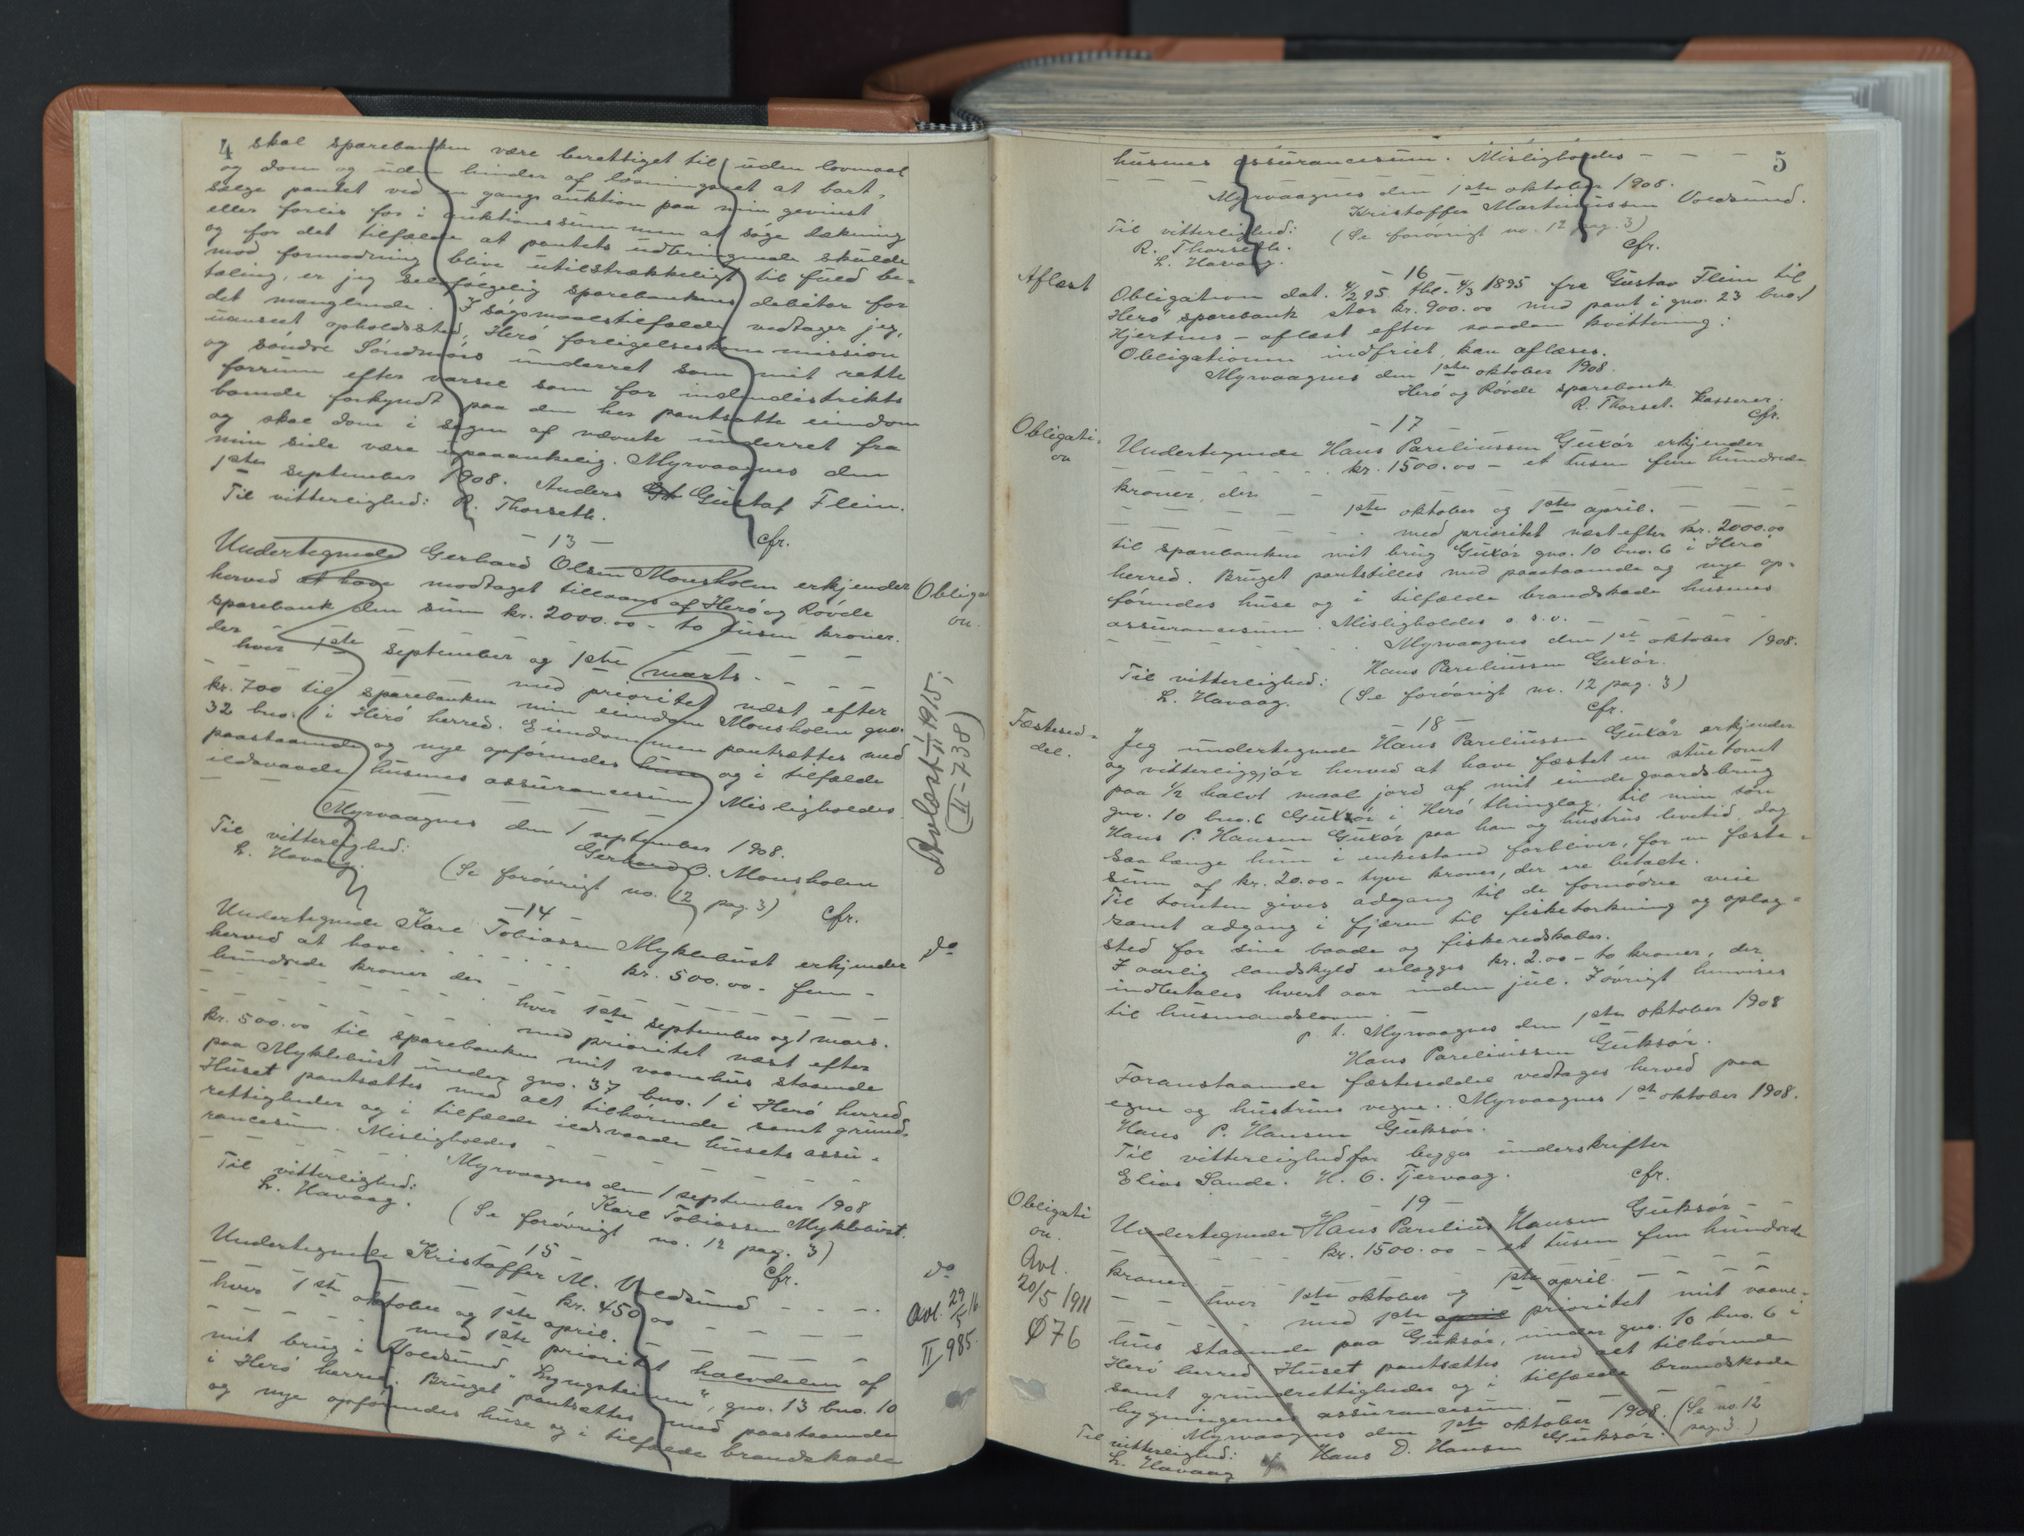 4 skal sparebanken være berettiget til uden lovmaal
og dom og uden hinder af løsningsret at bort-
sælge pantet ved en gangs auktion paa min gevinst
eller forlis for i auktionssummen at søge dækning
og for det tilfælde at pantets udbringende skulde
mod formodning blive utilstrækkeligt til fuld be-
taling, er jeg selvfølgelig sparebankens debitor for
det manglende. I søgsmaalstilfælde vedtager jeg,
uanseet opholdssted, Herø forligelseskommission
og søndre Søndmørs underret som mit rette
forrum efter varsel som for indendistrikts
boende forkyndt paa den her pantsatte eiendom
og skal dom i sagen af nævnte underret fra
min side være upaaankelig. Myrvaagnes den
1ste september 1908. Anders Gustaf Flein.
Til vitterlighed: R. Thorseth.
cfr.
- 13 -
Undertegnede Gerhard Olsen Monsholm erkjender
herved at have modtaget tillaans af Herø og Røvde
sparebank den sum kr. 2000.00 - to tusen kroner.
der - - - - -
hver 1ste september og 1ste marts. - - - -
- - - - med prioritet næst efter
kr. 700 til sparebanken min eiendom Monsholm gno.
32 bno. 1 i Herø herred. Eiendommen pantsættes med
paastaaende og nye opførendes huse og i tilfælde
ildsvaade husenes assurancesum. Misligholdes
- - - - -
Myrvaagnes den 1 september 1908.
Til vitterlighed: Gerhard O. Monsholm
L. Havaag. (Se forøvrigt no. 12 pag. 3) cfr.
- 14 -
Undertegnede Karl Tobiassen Myklebust erkjender
herved at have . . . . . . kr. 500.00 - fem -
hundrede kroner der - - - - -
- - - - hver 1ste september og 1 mars.
- - - - med prioritet næst efter
kr. 500.00 til sparebanken mit vaanehus staaende
paa Myklebust under gno. 37 bno. 1 i Herø herred.
Huset pantsættes med alt tilhørende samt grund-
rettigheder og i tilfælde ildsvaade husets assu-
rancesum. Misligholdes - - - -
- - - - -
Myrvaagnes den 1 september 1908
Til vitterlighed: Karl Tobiassen Myklebust.
L. Havaag. (Se forøvrigt no. 12 pag. 3)
cfr.
15
Undertegnede Kristoffer M. Voldsund - - - -
- - - - kr. 450.00 - - - -
hver 1ste oktober og 1ste april. - - - -
- - - - med 1ste prioritet halvdelen af
mit brug i Voldsund "Lyngsteinen", gno. 13 bno. 10
i Herø herred. Bruget pantsættes med paastaaende
og nye opførendes huse og i tilfælde brandskade
Obligati
on.
Avlæst 1/11 1915;
(II - 738)
do
do
Avl. 29/5 16.
II 985.
5
husenes assurancesum. Misligholdes - - - -
Myrvaagnes den 1ste oktober 1908.
Kristoffer Martinussen Voldsund.
Til vitterlighed: (Se forøvrigt no. 12 pag. 3)
R. Thorseth. cfr.
L. Havaag.
Aflæst
- 16
Obligation dat. 4/2 95. tbl. 4/3 1895 fra Gustav Flein til
Herø sparebank stor kr. 900.00 med pant i gno. 23 bno. 1
Hjertnes - aflæst efter saadan kvittering:
Obligationen indfriet, kan aflæses.
Myrvaagnes den 1ste oktober 1908.
Herø og Røvde sparebank
R. Thorset. Kasserer.
cfr.
Obligati-
on
- 17
Undertegnede Hans Pareliussen Guxør erkjender
- - - - kr. 1500.00 - et tusen fem hundrede
kroner, der - - - - -
- - - - 1ste oktober og 1ste april. - - -
- - - - med prioritet næst efter kr. 2000.00
til sparebanken mit brug Guxør gno. 10 bno. 6 i Herø
herred. Bruget pantstilles med paastaaende og nye op-
førendes huse og i tilfælde brandskade husenes
assurancesum. Misligholdes o. s. v. - - -
Myrvaagnes den 1ste oktober 1908.
Til vitterlighed: Hans Pareliussen Guxør.
L. Havaag. (Se forøvrigt no. 12 pag. 3)
cfr.
Fæstesed-
del.
18 -
Jeg undertegnede Hans Pareliussen Guxør erkjender
og vitterliggjør herved at have fæstet en stuetomt
paa 1/2 halvt maal jord af mit eiende gaardsbrug
gno. 10 bno. 6 Guxør i Herø thinglag, til min søn
Hans P. Hansen Guxør paa han og hustrus levetid, dog
saalænge hun i enkestand forbliver, for en fæste-
sum af kr. 20.00 - tyve kroner, der ere betalte.
Til tomten gives adgang til de fornødne veie
samt adgang i fjæren til fisketørkning og oplag-
sted for sine baade og fiskeredskaber.
I aarlig landskyld erlægges kr. 2.00 - to kroner, der
indbetales hvert aar inden jul. Iøvrigt henvises
til husmandsloven.
p. t. Myrvaagnes den 1ste oktober 1908
Hans Pareliussen Guksør.
Foranstaaende fæsteseddel vedtages herved paa
egne og hustrues vegne. Myrvaagnes 1ste oktober 1908.
Hans P. Hansen Guksør.
Til vitterlighed for begges underskrifter
Elias Sande. H. O. Tjervaag. cfr.
Obligati
on.
Avl.
20/5 1911
Ø 76
- 19 -
Undertegnede Hans Parelius Hansen Guksør - -
kr. 1500.00 - et tusen fem hundrede
kroner - - - - -
- - hver 1ste oktober og 1ste april. - - -
- - - - med 1ste april prioritet mit vaane-
hus staaende paa Guksør, under gno. 10 bno. 6 i
Herø herred. Huset pantsættes med alt tilhørende
samt grundrettigheder og i tilfælde brandskade
bygningernes assurancesum. - - - -
Myrvaagnes den 1ste oktober 1908. (Se no. 12
Til vitterlighed: Hans P. Hansen Guksør. pag. 3.)
L. Havaag cfr